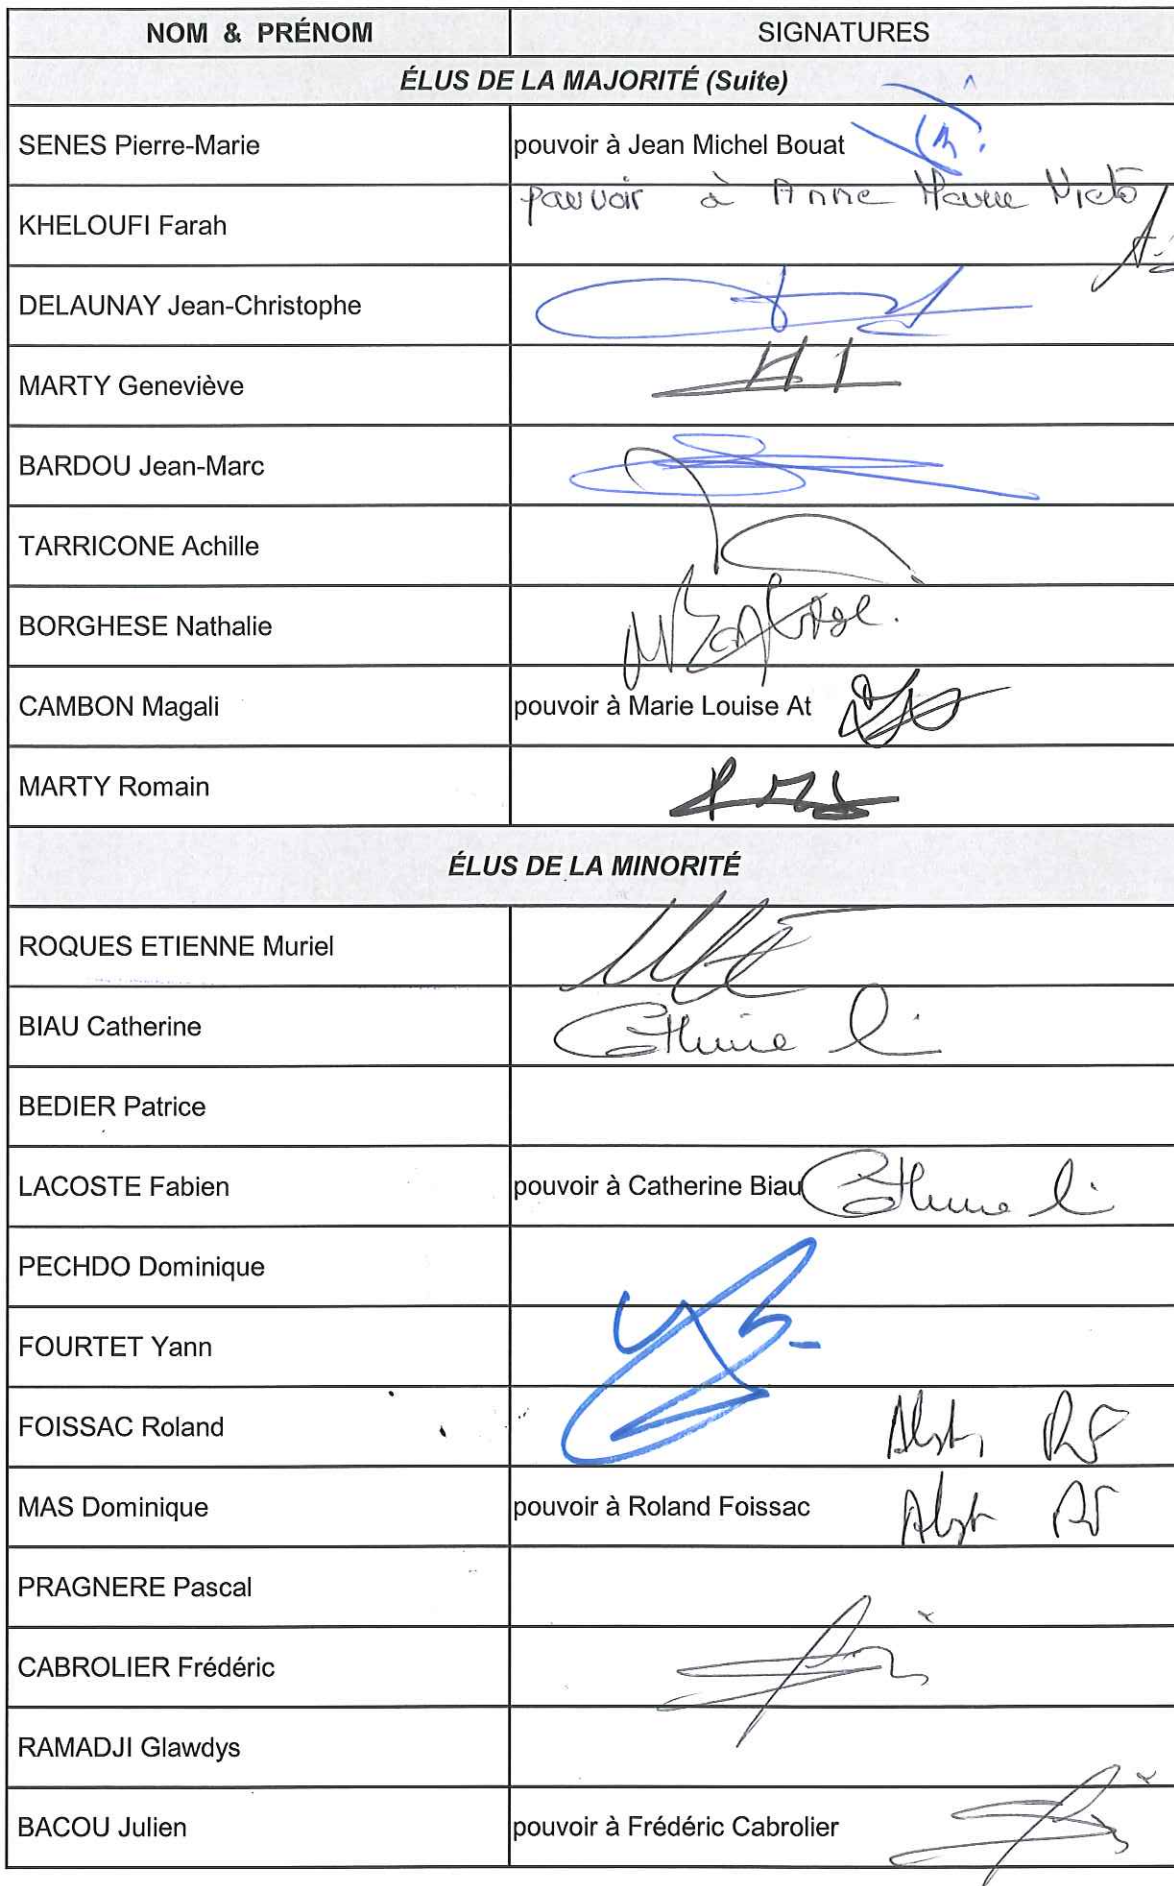 NOM & PRÉNOM SIGNATURES
ÉLUS DE LA MAJORITÉ (Suite)
SENES Pierre-Marie pouvoir à Jean Michel Bouat
KHELOUFI Farah pouvoir à Anne Marie Nieto
DELAUNAY Jean-Christophe
MARTY Geneviève
BARDOU Jean-Marc
TARRICONE Achille
BORGHESE Nathalie
CAMBON Magali pouvoir à Marie Louise At
MARTY Romain
ÉLUS DE LA MINORITÉ
ROQUES ETIENNE Muriel
BIAU Catherine
BEDIER Patrice
LACOSTE Fabien pouvoir à Catherine Biau
PECHDO Dominique
FOURTET Yann
FOISSAC Roland
MAS Dominique pouvoir à Roland Foissac
PRAGNERE Pascal
CABROLIER Frédéric
RAMADJI Glawdys
BACOU Julien pouvoir à Frédéric Cabrolier